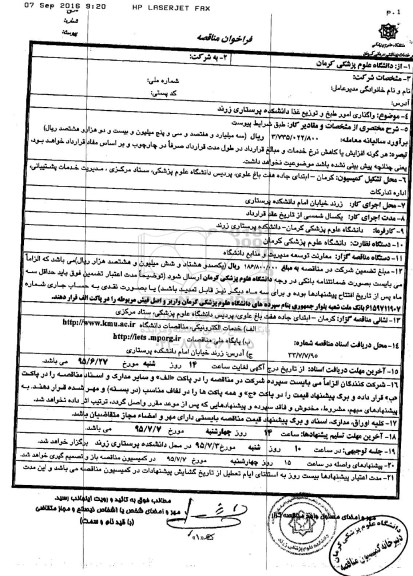 07 Sep 2016 9:20 HP LASERJET FAX p.1
فراخوان مناقصه
۱- از: دانشگاه علوم پزشکی کرمان
۲- به شرکت:
۳- مشخصات شرکت:
نام و نام خانوادگی مدیرعامل: شماره ملی:
آدرس: کد پستی:
۴- موضوع: واگذاری امور طبخ و توزیع غذا دانشکده پرستاری زرند
۵- شرح مختصری از مشخصات و مقادیر کار: طبق شرایط پیوست
برآورد سالیانه معامله: ۳/۷۳۵/۰۲۲/۸۰۰ ریال (سه میلیارد و هفتصد و سی و پنج میلیون و بیست و دو هزار و هشتصد ریال)
تبصره: هر گونه افزایش یا کاهش نرخ خدمات و مبالغ قرارداد در طول مدت قرارداد صرفاً در چارچوب و بر اساس مفاد قرارداد خواهد بود،
یعنی چنانچه پیش بینی نشده باشد موضوعیت نخواهد داشت.
۶- محل تشکیل کمیسیون: کرمان – ابتدای جاده هفت باغ علوی، پردیس دانشگاه علوم پزشکی، ستاد مرکزی، مدیریت خدمات پشتیبانی،
اداره تدارکات
۷- محل اجرای کار: زرند خیابان امام دانشکده پرستاری
۸- مدت اجرای کار: یکسال شمسی از تاریخ عقد قرارداد
۹- کارفرما: دانشگاه علوم پزشکی کرمان – دانشکده پرستاری زرند
۱۰- دستگاه نظارت: دانشگاه علوم پزشکی کرمان
۱۱- دستگاه مناقصه گزار: معاونت توسعه مدیریت و منابع دانشگاه
۱۲- مبلغ تضمین شرکت در مناقصه به مبلغ ۱۸۶/۸۰۰/۰۰۰ ریال (یکصد و هشتاد و شش میلیون و هشتصد هزار ریال) می باشد که الزاماً
می بایست بصورت ضمانتنامه بانکی در وجه دانشگاه علوم پزشکی کرمان ارسال شود (توضیحاً مدت اعتبار تضمین فوق باید حداقل سه
ماه پس از تاریخ افتتاح پیشنهادها بوده و برای سه ماه دیگر نیز قابل تمدید باشد) یا بصورت نقدی به حساب جاری شماره
بانک ملت شعبه بلوار جمهوری بنام سپرده های دانشگاه علوم پزشکی کرمان واریز و اصل فیش مربوطه را در پاکت الف قرار دهند.
۱۳- نشانی مناقصه گزار: کرمان – ابتدای جاده هفت باغ علوی، پردیس دانشگاه علوم پزشکی، ستاد مرکزی
۱۴- محل دریافت اسناد مناقصه شماره:
الف) خدمات الکترونیکی، مناقصات دانشگاه http://www.kmu.ac.ir
ب) پایگاه ملی مناقصات http://iets.mporg.ir
ج) آدرس: زرند خیابان امام دانشکده پرستاری
۱۵- آخرین مهلت دریافت اسناد: از تاریخ درج آگهی لغایت ساعت ۱۴ روز شنبه مورخ ۹۵/۶/۲۷ می باشد.
۱۶- شرکت کنندگان الزاماً می بایست سپرده شرکت در مناقصه را در پاکت «الف» و سایر مدارک و اسناد مناقصه را در پاکت
«ب» قرار داده و برگ پیشنهاد قیمت را در پاکت «ج» و همه پاکت ها را در لفاف مناسب (در بسته) و مهر شده قرار دهند. به
پیشنهادهای مبهم، مشروط، مخدوش و فاقد سپرده و پیشنهادهایی که پس از موعد مقرر واصل گردد، ترتیب اثر داده نخواهد شد.
۱۷- کلیه اوراق، مدارک، اسناد و برگ پیشنهاد قیمت مناقصه بایستی دارای مهر و امضاء مجاز متقاضیان باشد.
۱۸- آخرین مهلت تسلیم پیشنهادها: ساعت ۱۴ روز چهارشنبه مورخ ۹۵/۷/۷
۱۹- جلسه توجیهی: در ساعت ۱۰ روز شنبه مورخ ۹۵/۷/۳ در محل دانشکده پرستاری زرند برگزار خواهد شد.
۲۰- پیشنهادهای واصله در ساعت ۱۵ روز چهارشنبه مورخ ۹۵/۷/۷ در کمیسیون مناقصه باز و تصمیم گیری خواهد شد.
۲۱- مدت اعتبار پیشنهادها بیست روز به استثنای ایام تعطیل از تاریخ گشایش پیشنهادات در کمیسیون مناقصه می باشد و این مدت
مطالب فوق به تائید و رویت اینجانب رسید.
مهر و امضای شخص یا اشخاص ذیصلاح و مجاز متقاضی
(با قید نام و سمت)
دانشگاه علوم پزشکی کرمان
دبیرخانه کمیسیون مناقصه